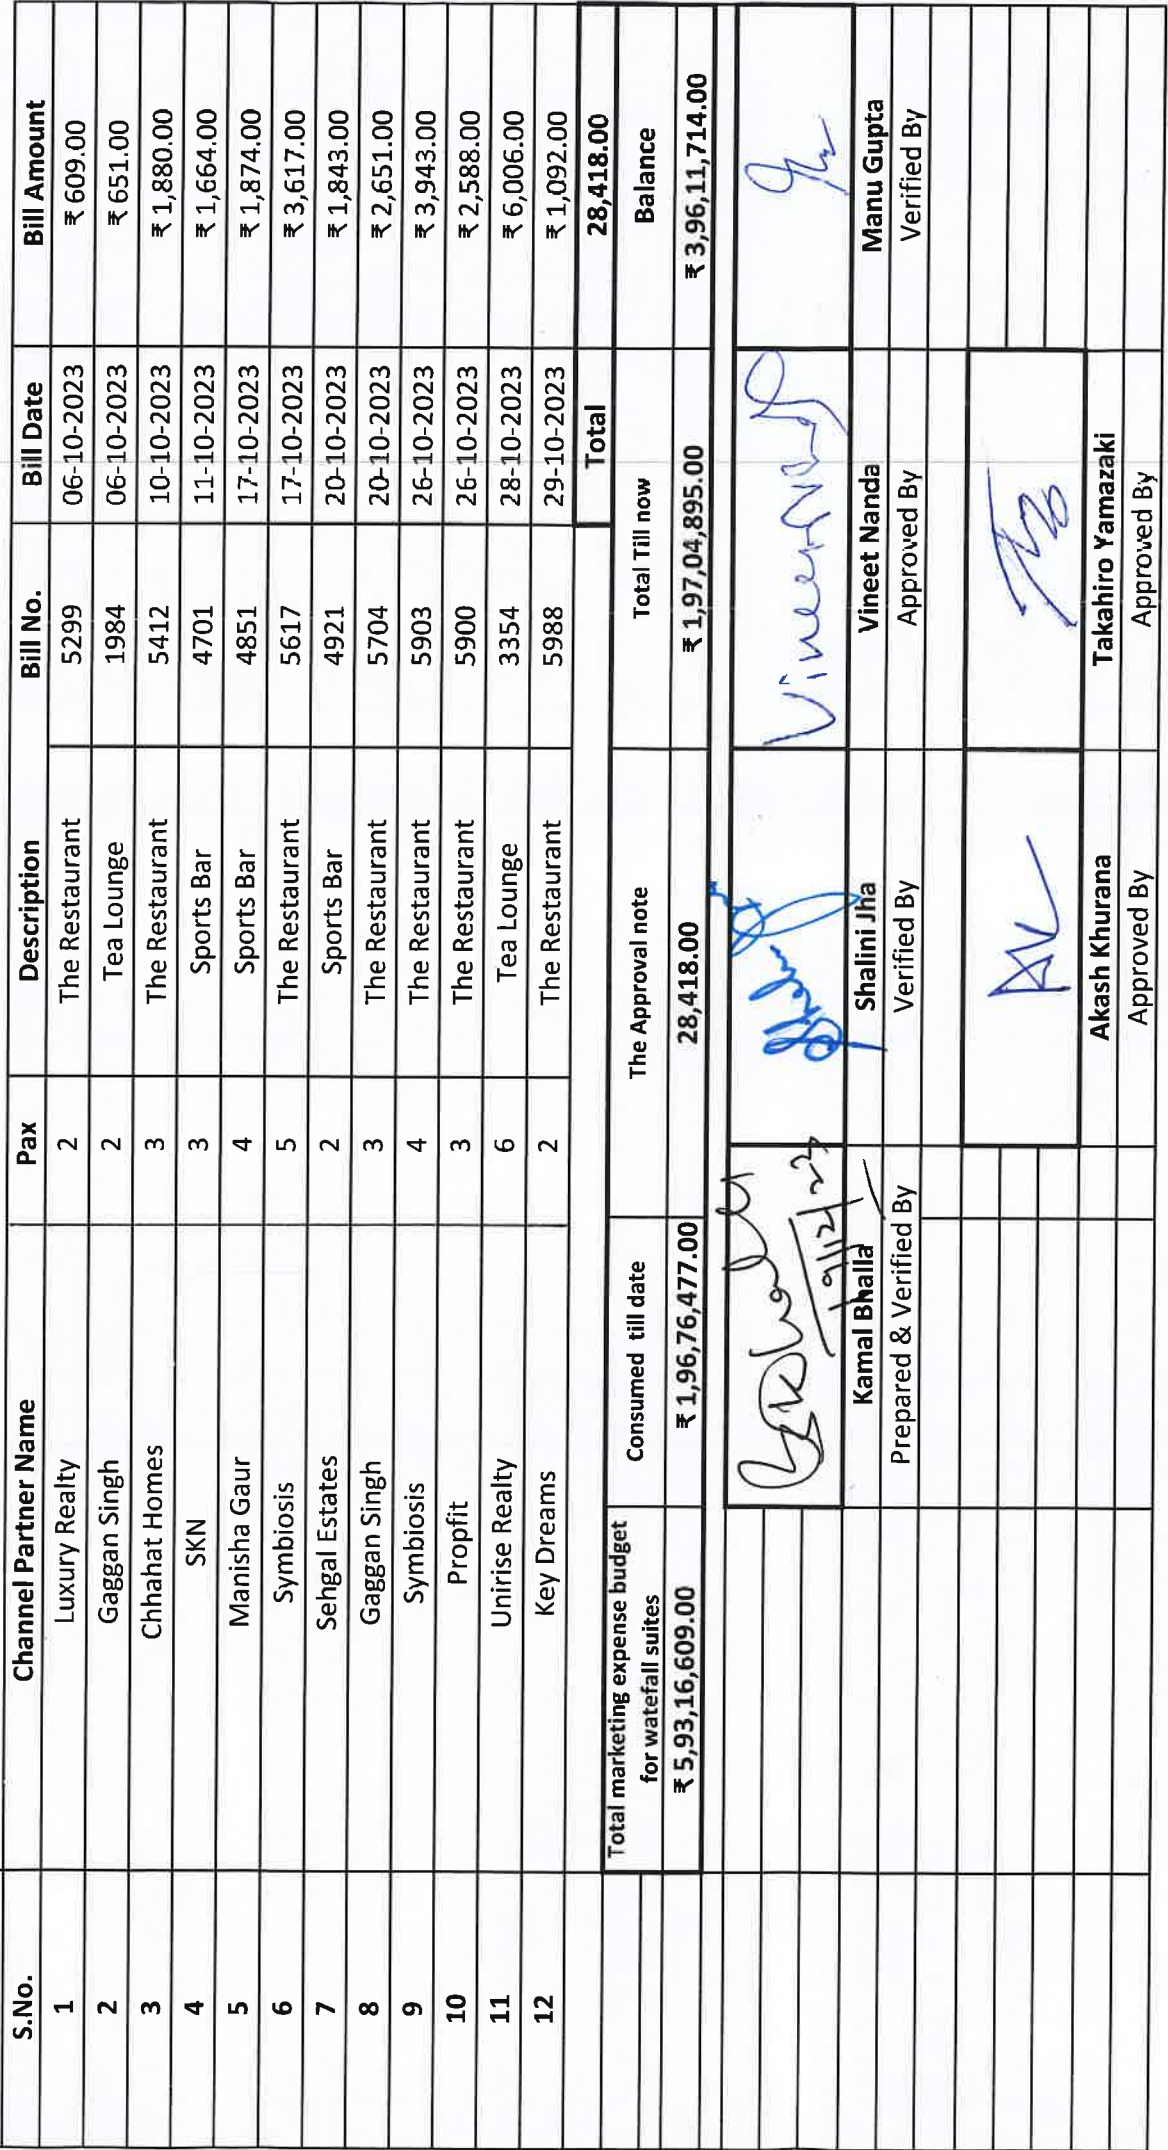 S.No. Channel Partner Name Pax Description Bill No. Bill Date Bill Amount
1 Luxury Realty 2 The Restaurant 5299 06-10-2023 ₹ 609.00
2 Gaggan Singh 2 Tea Lounge 1984 06-10-2023 ₹ 651.00
3 Chhahat Homes 3 The Restaurant 5412 10-10-2023 ₹ 1,880.00
4 SKN 3 Sports Bar 4701 11-10-2023 ₹ 1,664.00
5 Manisha Gaur 4 Sports Bar 4851 17-10-2023 ₹ 1,874.00
6 Symbiosis 5 The Restaurant 5617 17-10-2023 ₹ 3,617.00
7 Sehgal Estates 2 Sports Bar 4921 20-10-2023 ₹ 1,843.00
8 Gaggan Singh 3 The Restaurant 5704 20-10-2023 ₹ 2,651.00
9 Symbiosis 4 The Restaurant 5903 26-10-2023 ₹ 3,943.00
10 Propfit 3 The Restaurant 5900 26-10-2023 ₹ 2,588.00
11 Unirise Realty 6 Tea Lounge 3354 28-10-2023 ₹ 6,006.00
12 Key Dreams 2 The Restaurant 5988 29-10-2023 ₹ 1,092.00
Total 28,418.00
Total marketing expense budget
for watefall suites Consumed till date The Approval note Total Till now Balance
₹ 5,93,16,609.00 ₹ 1,96,76,477.00 28,418.00 ₹ 1,97,04,895.00 ₹ 3,96,11,714.00
19/12/23
Kamal Bhalla Shalini Jha Vineet Nanda Manu Gupta
Prepared & Verified By Verified By Approved By Verified By
Akash Khurana Takahiro Yamazaki
Approved By Approved By